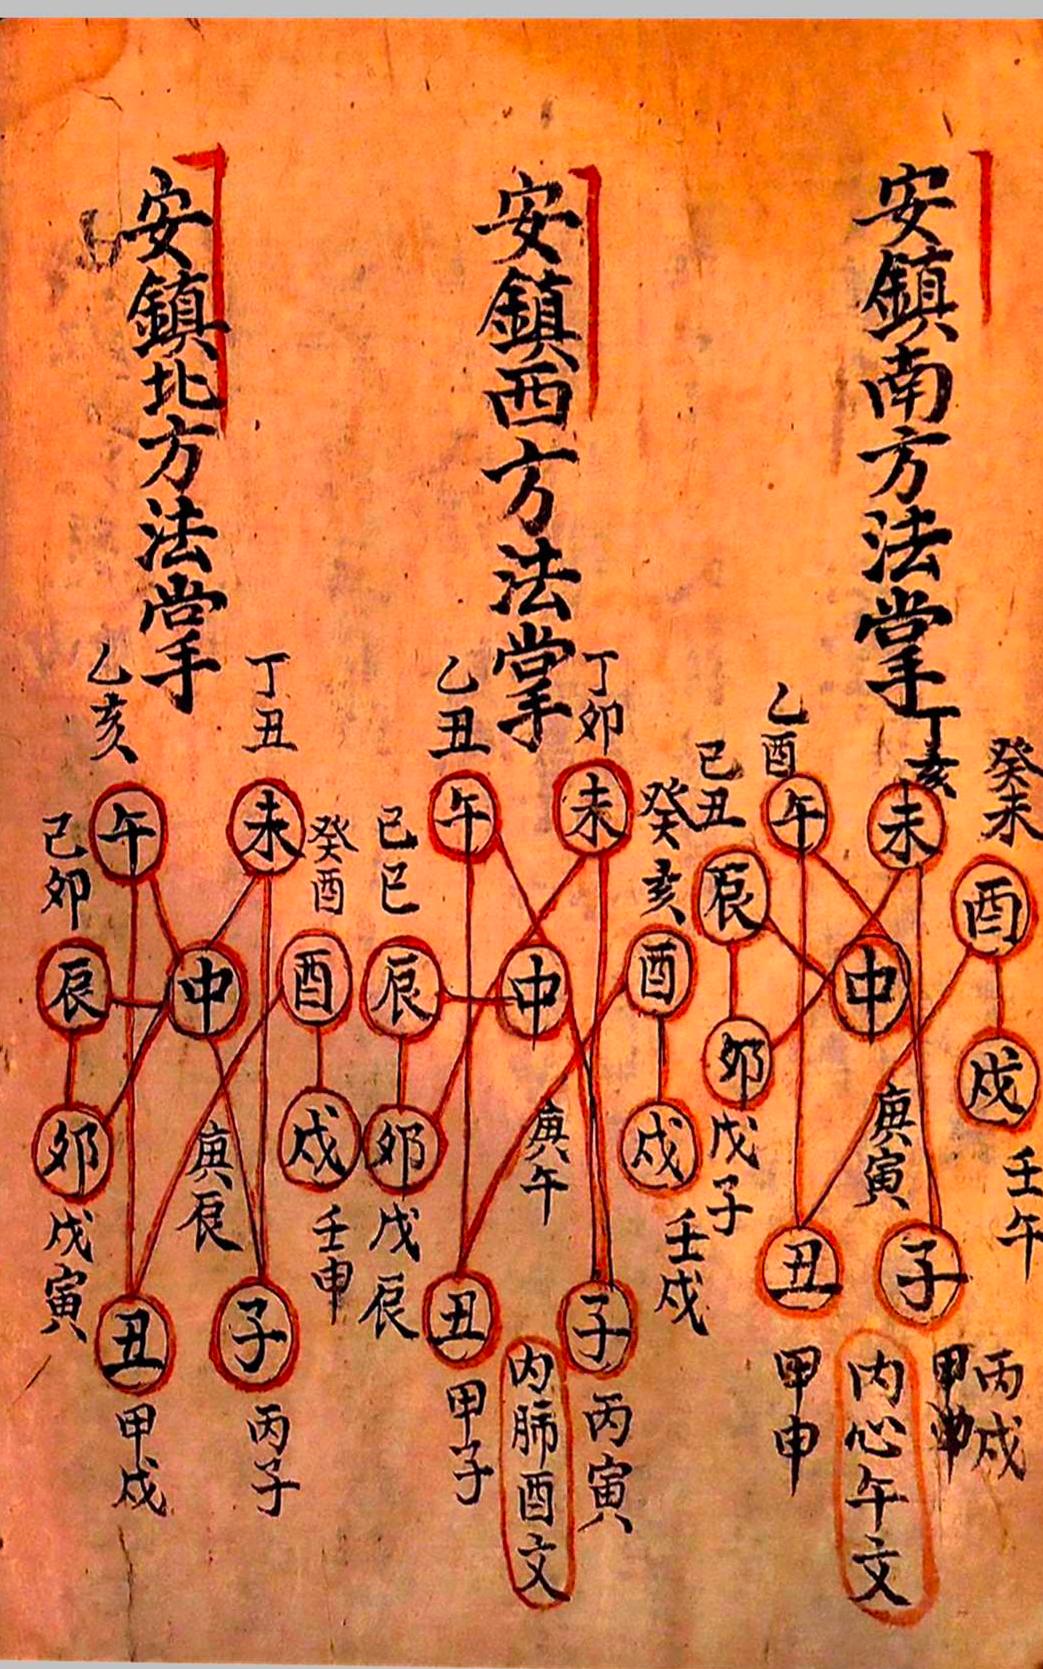 安鎮南方法掌
癸未
丁亥
乙酉
己丑
午
未
酉
辰
中
卯
戌
戊子
庚寅
壬午
丑
子
甲申
内心午文
丙戌
安鎮西方法掌
丁卯
乙丑
癸亥
己巳
午
未
酉
辰
中
卯
戌
戊辰
庚午
壬戌
丑
子
甲子
内肺酉文
丙寅
安鎮北方法掌
丁丑
乙亥
癸酉
己卯
午
未
酉
辰
中
卯
戌
戊寅
庚辰
壬申
丑
子
甲戌
丙子